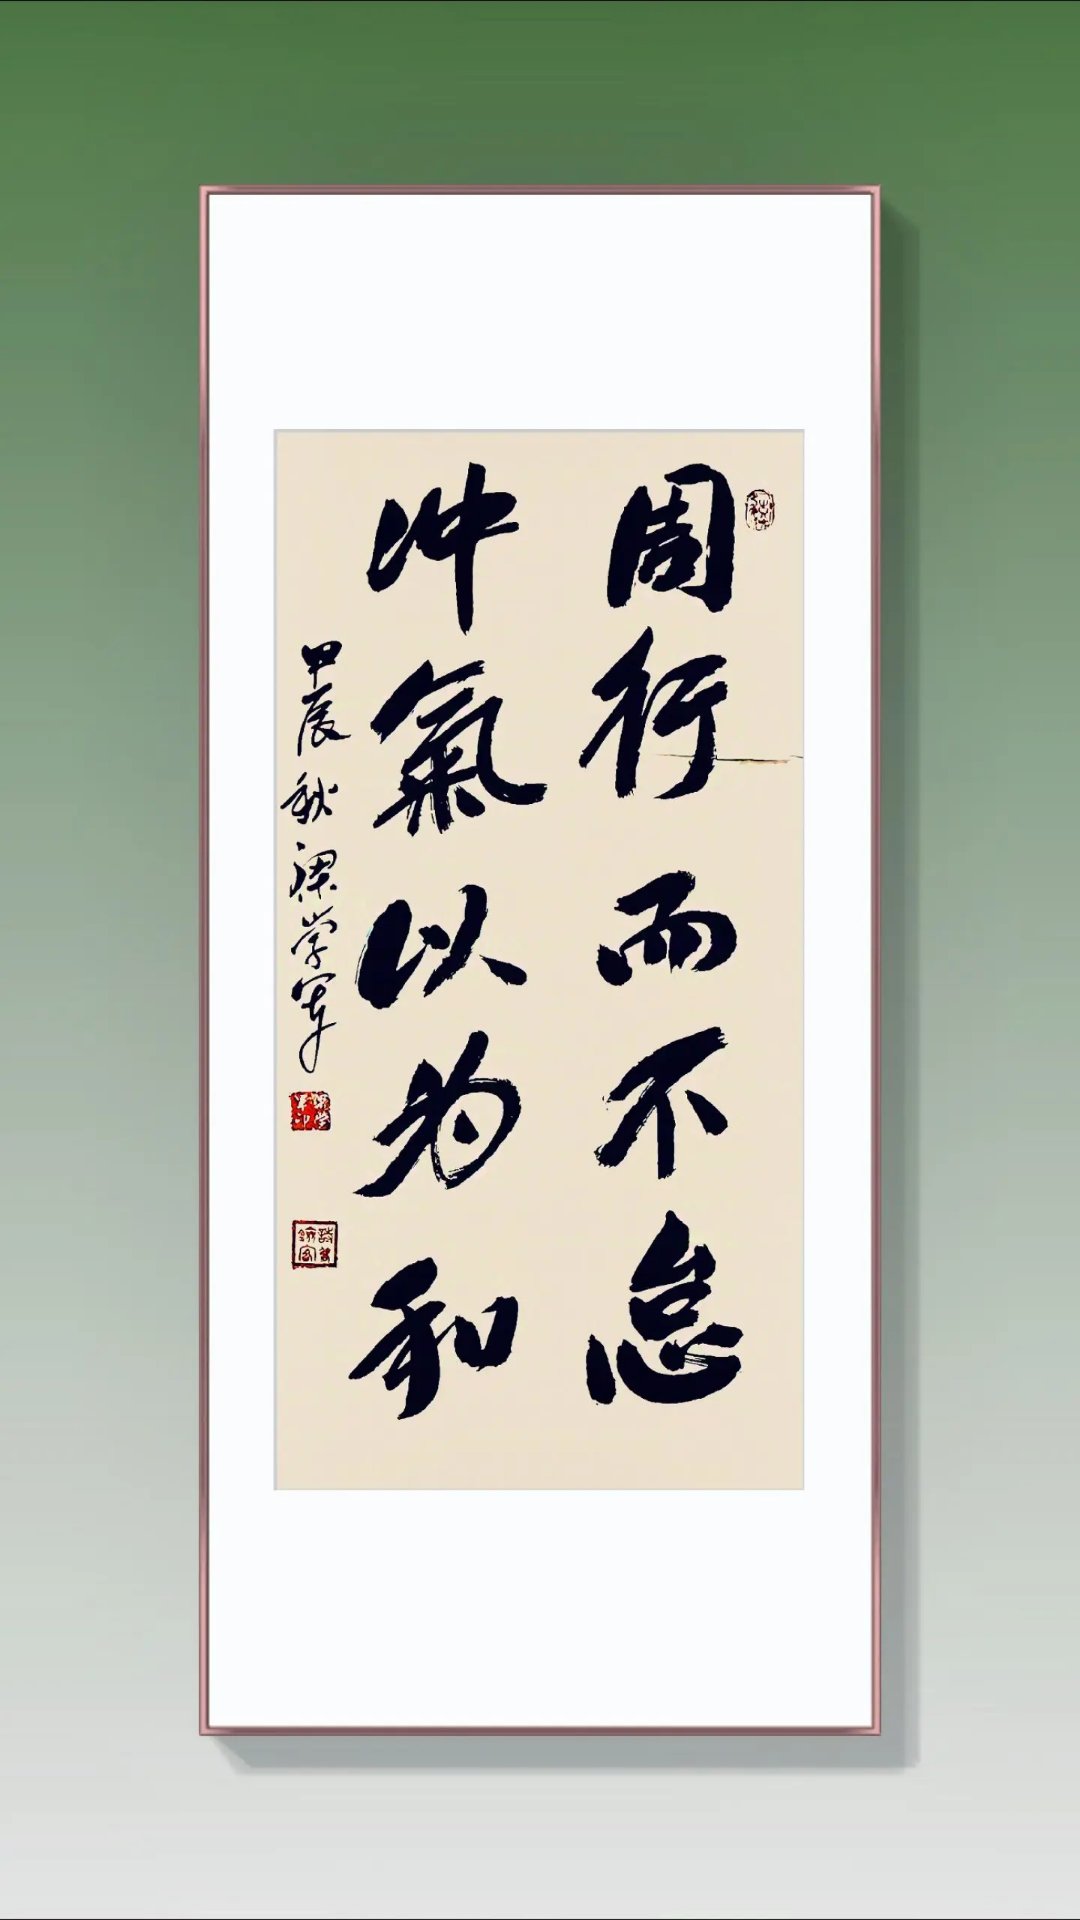 周行而不怠
冲氣以为和
甲辰秋梁学军